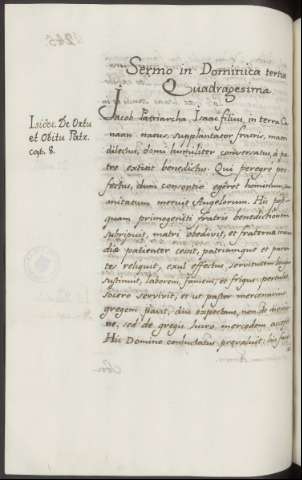 Sermo in Dominica tertia
Quadragesima
Isidor. De Ortu
et Obitu Patr.
cap. 8.
Jacob Patriarcha, Isaac filius, in terra Ca
naan natus, supplantator fratris, matri
dilectus, domi simpliciter conversatus, à pa
tre extitit benedictus. Qui peregre pro
fectus, dum consortio egeret hominum,
unitatem meruit Angelorum. Hic post
quam primogeniti fratris benedictionem
subripuit, matri obedivit, et fraternae invi
diae patienter cessit, patriamque et paren
tes reliquit, exul effectus servitutem longam
sustinuit, laborem, famem, et frigus pertulit
socero servivit, et ut pastor mercenarius
gregem pavit, diu expectans, non de
sed de grege suro mercedem accepit
Hic Domino conluctatus praevaluit